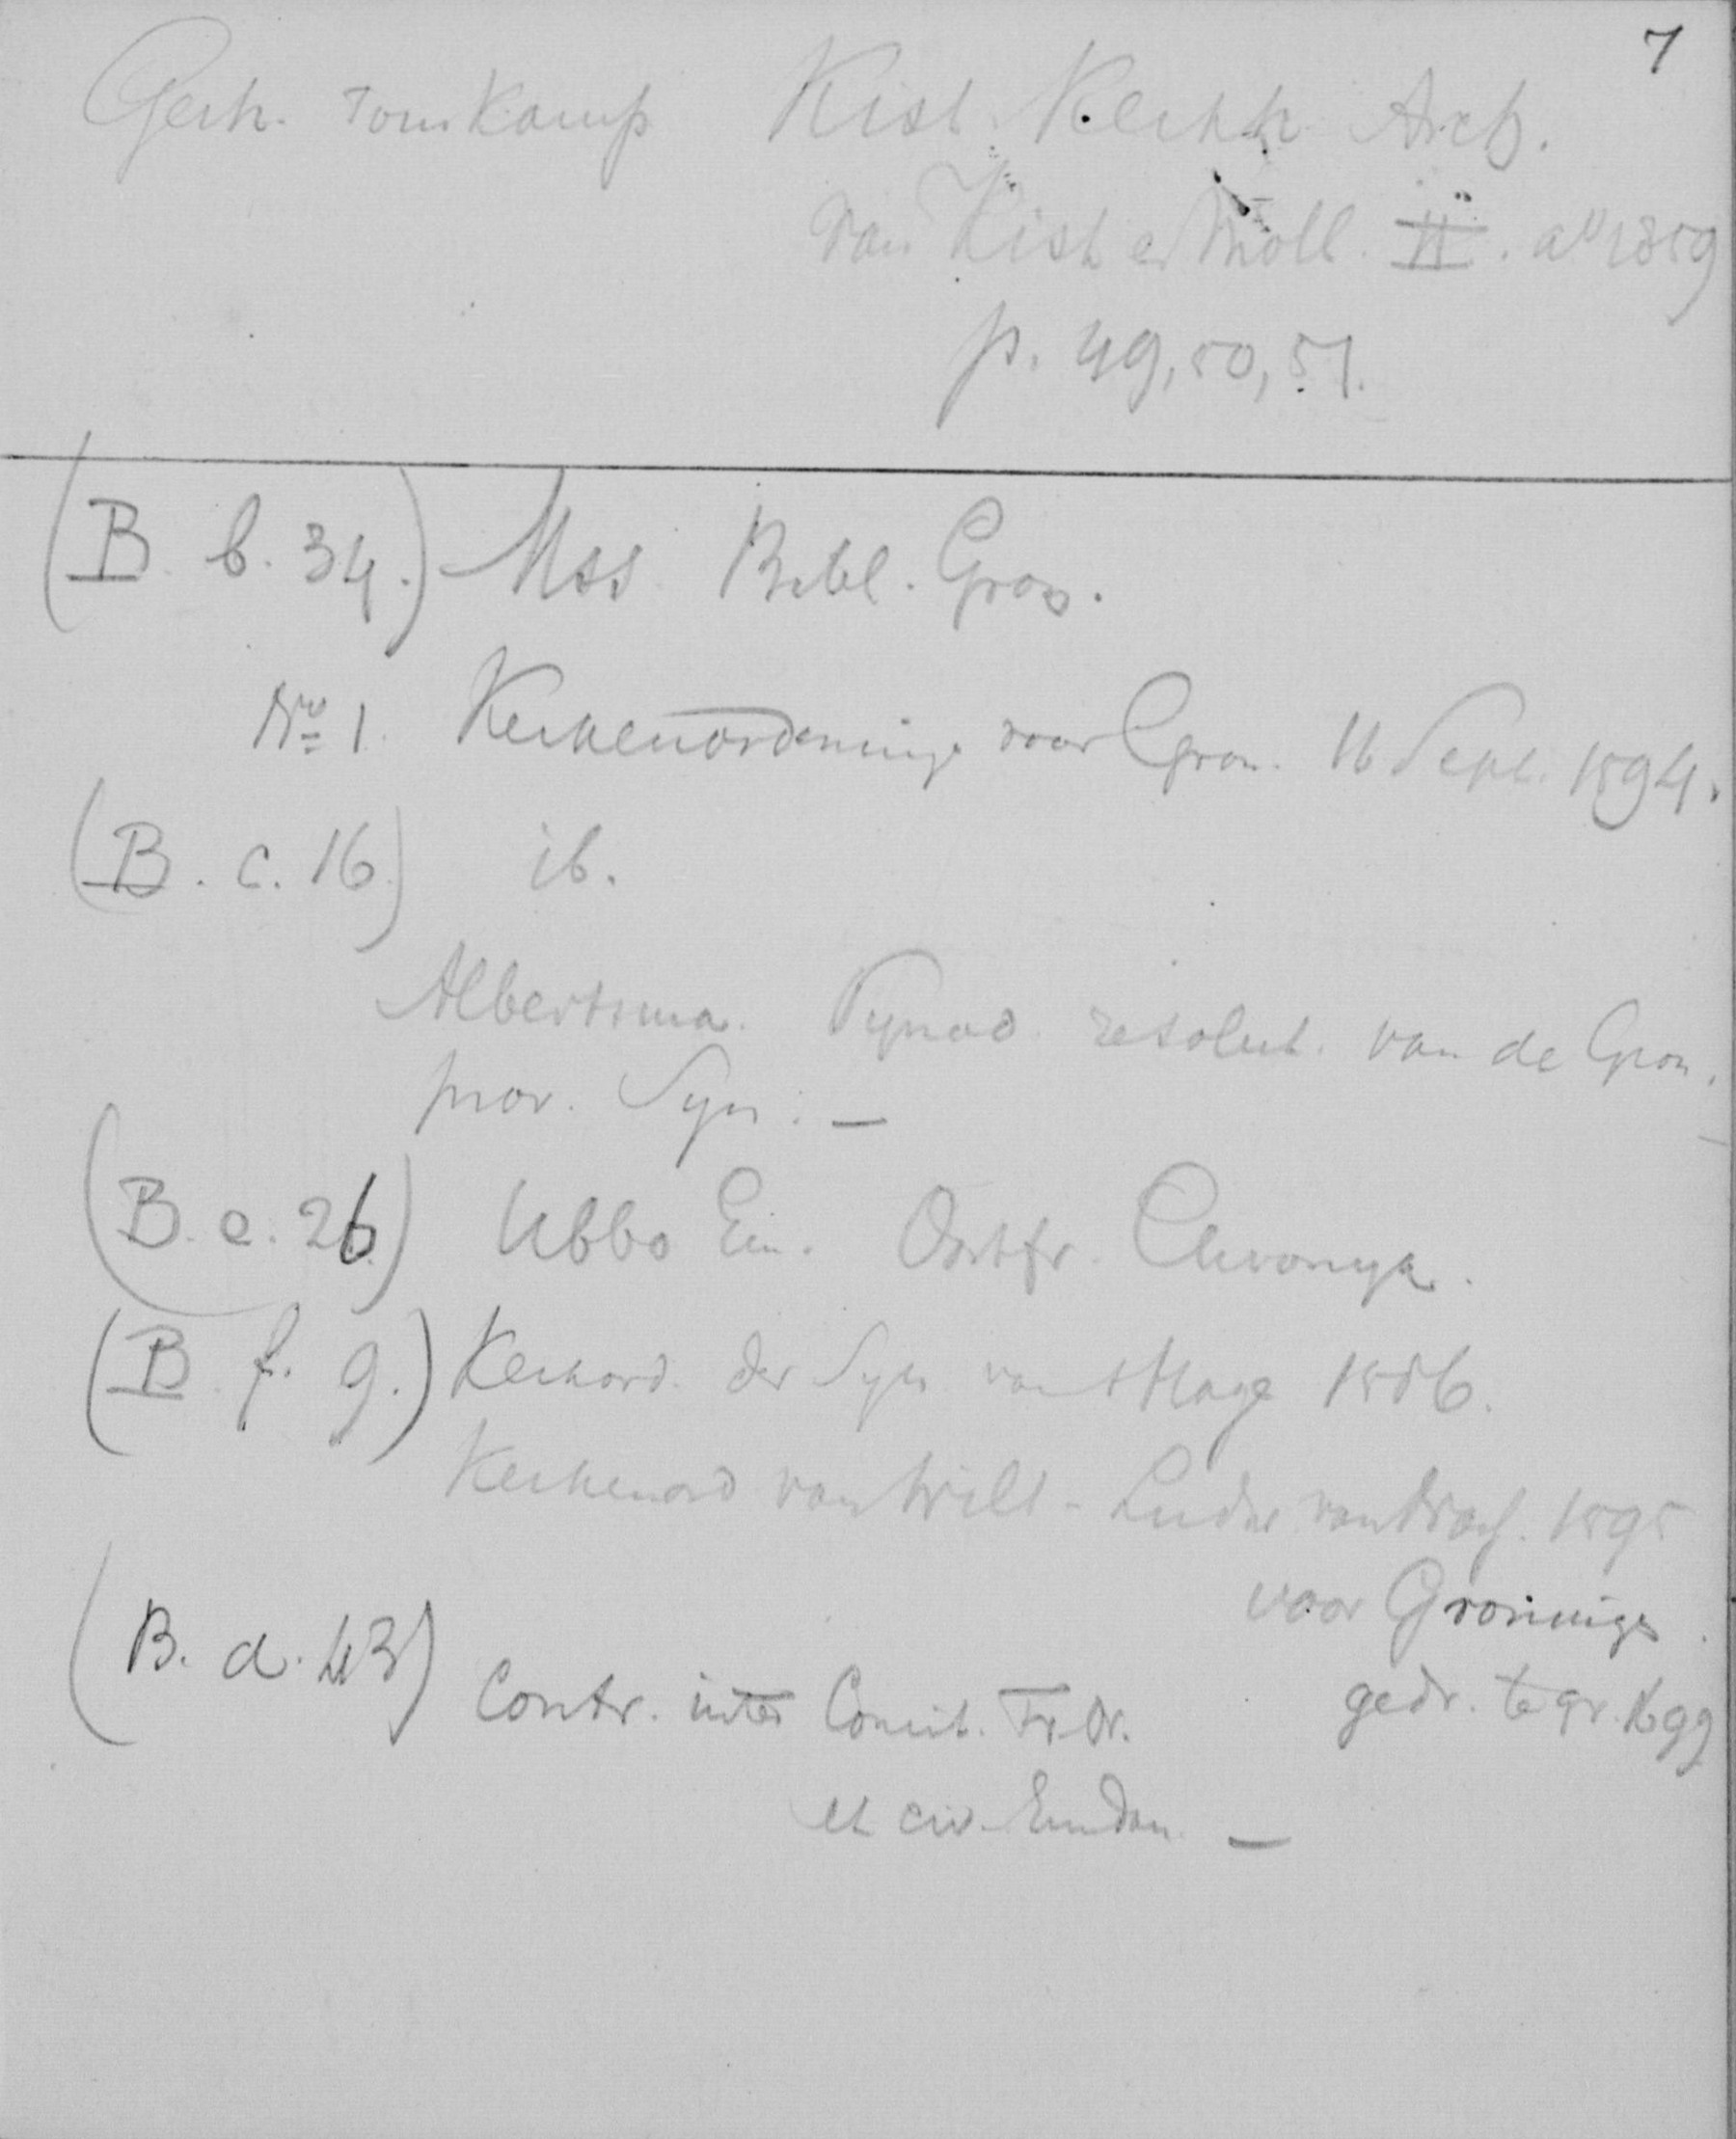 7
Gerh. tom Kamp Hist. Kerkh. Arch.
van Kist en Moll. II. ao 1859
p. 49, 50, 51.
(B. b. 34.) Mss. Bibl. Gron.
No 1. Kerkenordeninge voor Gron. 16 Sept. 1594.
(B. c. 16) ib.
Albertoma. Synod. resolut. van de Gron.
prov. Syn. —
(B. e. 26) Ubbo Em. Ostfr. Chronyk.
(B. f. 9.) Kerkord. der Syn. van 's Hage 1586.
Kerkenord van Will. Ludw van Nass. 1595
voor Groningen.
gedr. te Gr. 1699
(B. d. 43) Contr. inter Comit. Fr. Or.
et civ. Emdan. —